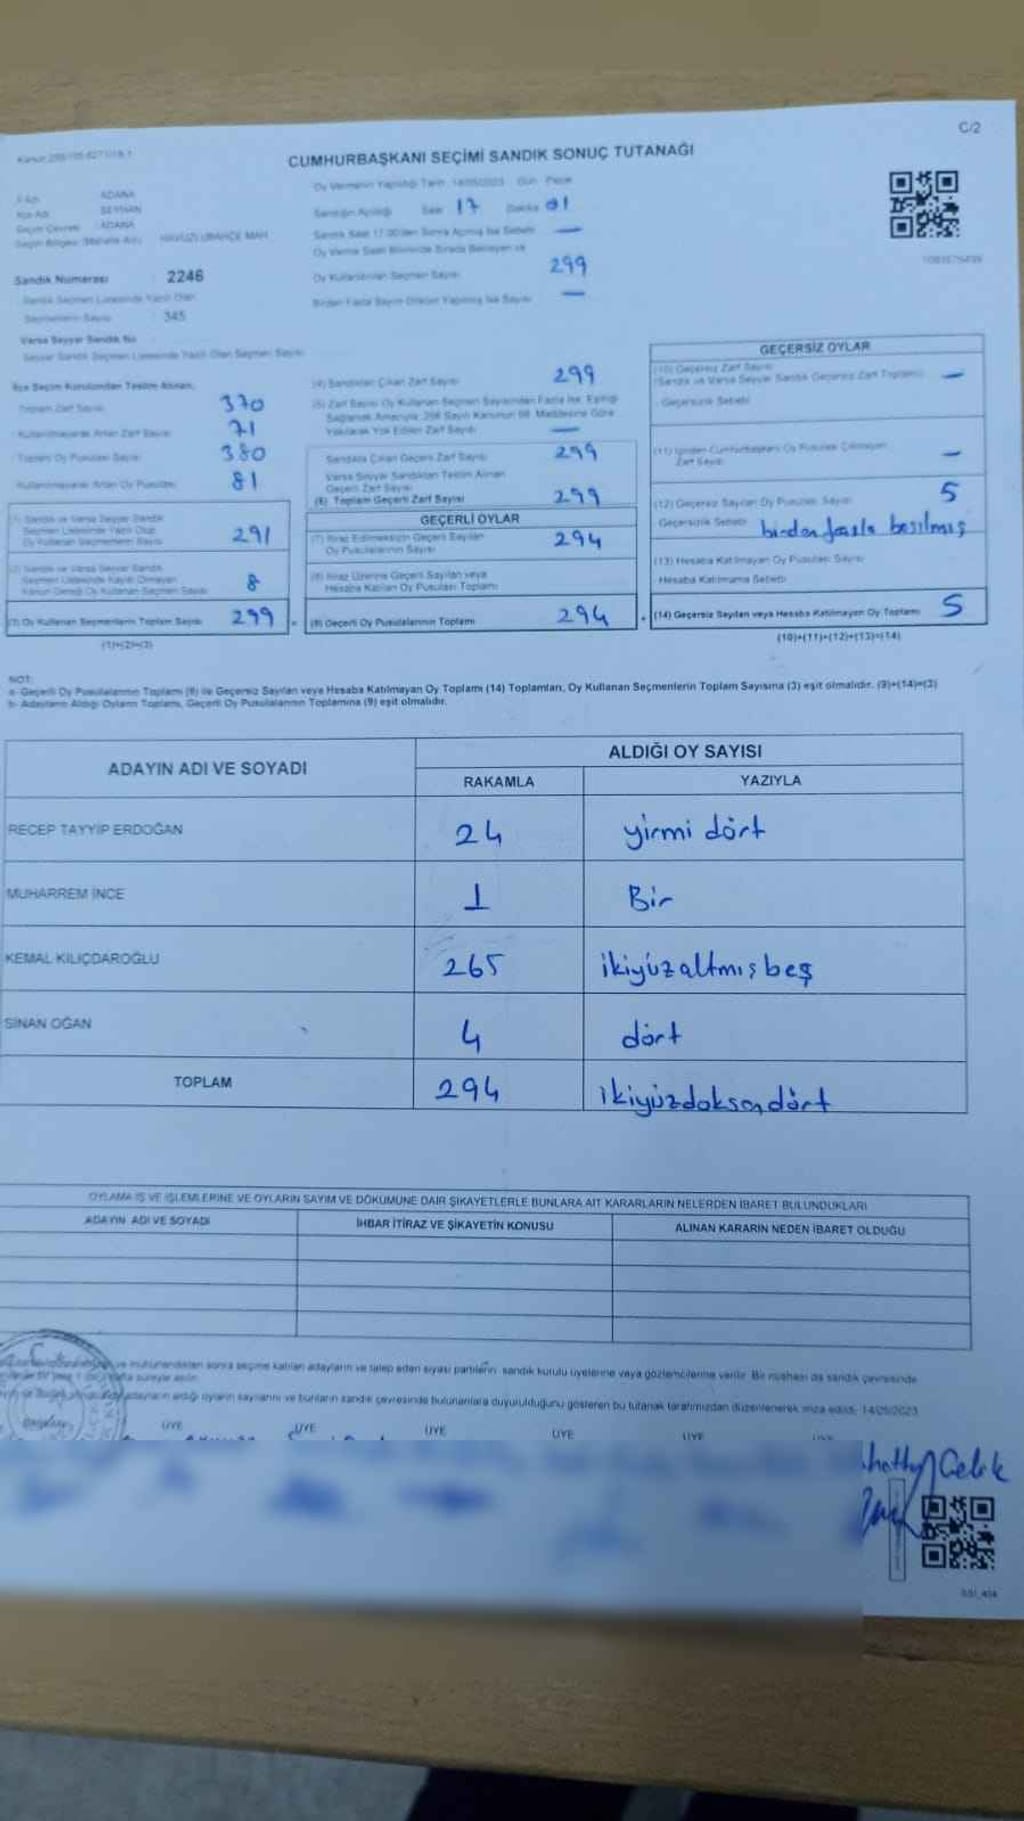 C/2
CUMHURBAŞKANI SEÇİMİ SANDIK SONUÇ TUTANAĞI
Oy Vermenin Yapıldığı Tarih 14/05/2023 Gün Pazar
İl Adı ADANA
İlçe Adı SEYHAN
Seçim Çevresi ADANA
Sandığın Açıldığı Saat 17 Dakika 01
Sandık Saat 17.00'den Sonra Açılmış İse Sebebi —
Oy Verme Saati Bitiminde Sırada Bekleyen ve
Oy Kullandırılan Seçmen Sayısı 299
Birden Fazla Sayım Döküm Yapılmış İse Sayısı —
Sandık Numarası 2246
Sandık Seçmen Listesinde Yazılı Olan
Seçmenlerin Sayısı 345
Varsa Seyyar Sandık No
Seyyar Sandık Seçmen Listesinde Yazılı Olan Seçmen Sayısı
İlçe Seçim Kurulundan Teslim Alınan;
Toplam Zarf Sayısı 370
Kullanılmayarak Artan Zarf Sayısı 71
Toplam Oy Pusulası Sayısı 380
Kullanılmayarak Artan Oy Pusulası 81
(1) Sandık ve Varsa Seyyar Sandık
Seçmen Listesinde Yazılı Olup
Oy Kullanan Seçmenlerin Sayısı 291
(2) Sandık ve Varsa Seyyar Sandık
Seçmen Listesinde Kayıtlı Olmayan
Kanun Gereği Oy Kullanan Seçmen Sayısı 8
(3) Oy Kullanan Seçmenlerin Toplam Sayısı 299
(1)+(2)=(3)
(4) Sandıktan Çıkan Zarf Sayısı 299
(5) Zarf Sayısı Oy Kullanan Seçmen Sayısından Fazla İse, Eşitliği
Sağlamak Amacıyla 298 Sayılı Kanunun 98. Maddesine Göre
Yakılarak Yok Edilen Zarf Sayısı —
Sandıkta Çıkan Geçerli Zarf Sayısı 299
Varsa Seyyar Sandıktan Teslim Alınan
Geçerli Zarf Sayısı
(6) Toplam Geçerli Zarf Sayısı 299
GEÇERLİ OYLAR
(7) İtiraz Edilmeksizin Geçerli Sayılan
Oy Pusulalarının Sayısı 294
(8) İtiraz Üzerine Geçerli Sayılan veya
Hesaba Katılan Oy Pusulası Toplamı
(9) Geçerli Oy Pusulalarının Toplamı 294
GEÇERSİZ OYLAR
(10) Geçersiz Zarf Sayısı
(Sandık ve Varsa Seyyar Sandık Geçersiz Zarf Toplamı) —
Geçersizlik Sebebi
(11) İçinden Cumhurbaşkanı Oy Pusulası Çıkmayan
Zarf Sayısı —
(12) Geçersiz Sayılan Oy Pusulası Sayısı 5
Geçersizlik Sebebi birden fazla basılmış
(13) Hesaba Katılmayan Oy Pusulası Sayısı
Hesaba Katılmama Sebebi
(14) Geçersiz Sayılan veya Hesaba Katılmayan Oy Toplamı 5
(10)+(11)+(12)+(13)=(14)
NOT:
a- Geçerli Oy Pusulalarının Toplamı (9) ile Geçersiz Sayılan veya Hesaba Katılmayan Oy Toplamı (14) Toplamları, Oy Kullanan Seçmenlerin Toplam Sayısına (3) eşit olmalıdır. (9)+(14)=(3)
b- Adayların Aldığı Oyların Toplamı, Geçerli Oy Pusulalarının Toplamına (9) eşit olmalıdır.
ADAYIN ADI VE SOYADI
ALDIĞI OY SAYISI
RAKAMLA YAZIYLA
RECEP TAYYİP ERDOĞAN 24 yirmi dört
MUHARREM İNCE 1 Bir
KEMAL KILIÇDAROĞLU 265 ikiyüzaltmış beş
SİNAN OĞAN 4 dört
TOPLAM 294 ikiyüzdoksan dört
OYLAMA İŞ VE İŞLEMLERİNE VE OYLARIN SAYIM VE DÖKÜMÜNE DAİR ŞİKAYETLERLE BUNLARA AİT KARARLARIN NELERDEN İBARET BULUNDUKLARI
ADAYIN ADI VE SOYADI
İHBAR İTİRAZ VE ŞİKAYETİN KONUSU
ALINAN KARARIN NEDEN İBARET OLDUĞU
ve mühürlendikten sonra seçime katılan adayların ve talep eden siyasi partilerin sandık kurulu üyelerine veya gözlemcilerine verilir. Bir nüshası da sandık çevresinde
adayların aldığı oyların sayılarını ve bunların sandık çevresinde bulunanlara duyurulduğunu gösteren bu tutanak tarafımızdan düzenlenerek imza edildi. 14/05/2023
Başkan ÜYE ÜYE ÜYE ÜYE ÜYE
Çelik